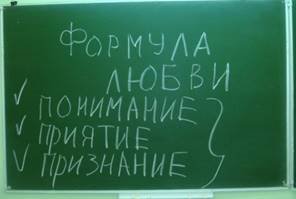 ФОРМУЛА
ЛЮБВИ
ПОНИМАНИЕ
ПРИЯТИЕ
ПРИЗНАНИЕ